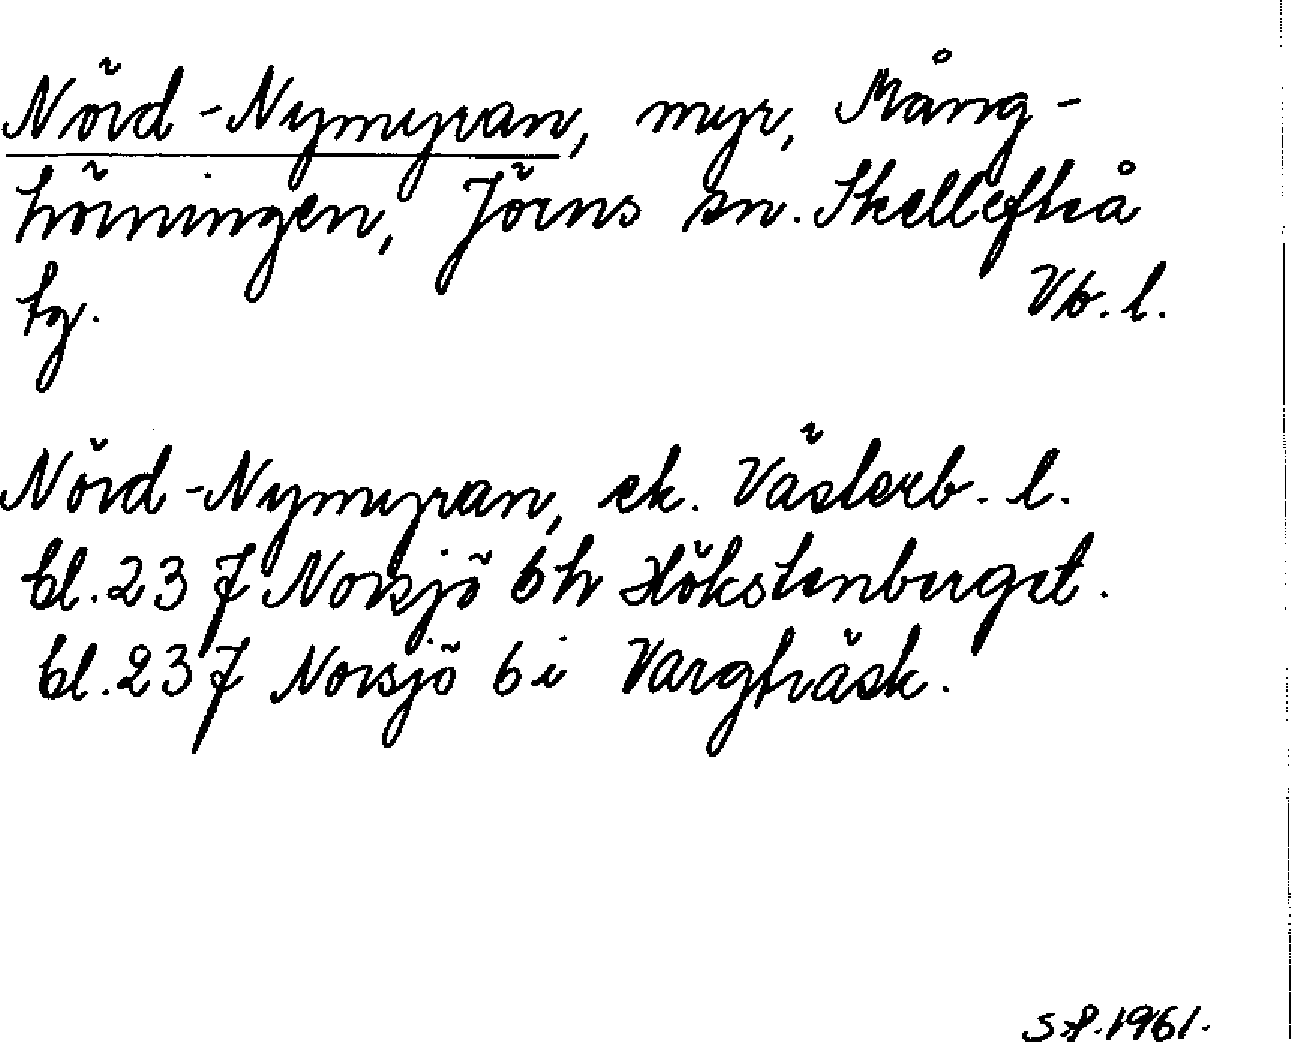 Nörd-Nymyran, myr, Mång-
höiningen, Jörns sn. Skellefteå
tg. Vb. l.
Nörd-Nymyran, ek. Västerb. l.
bl. 23 J Norsjö 6h Hökstenberget.
bl. 23 J Norsjö 6i Vargträsk.
1961.